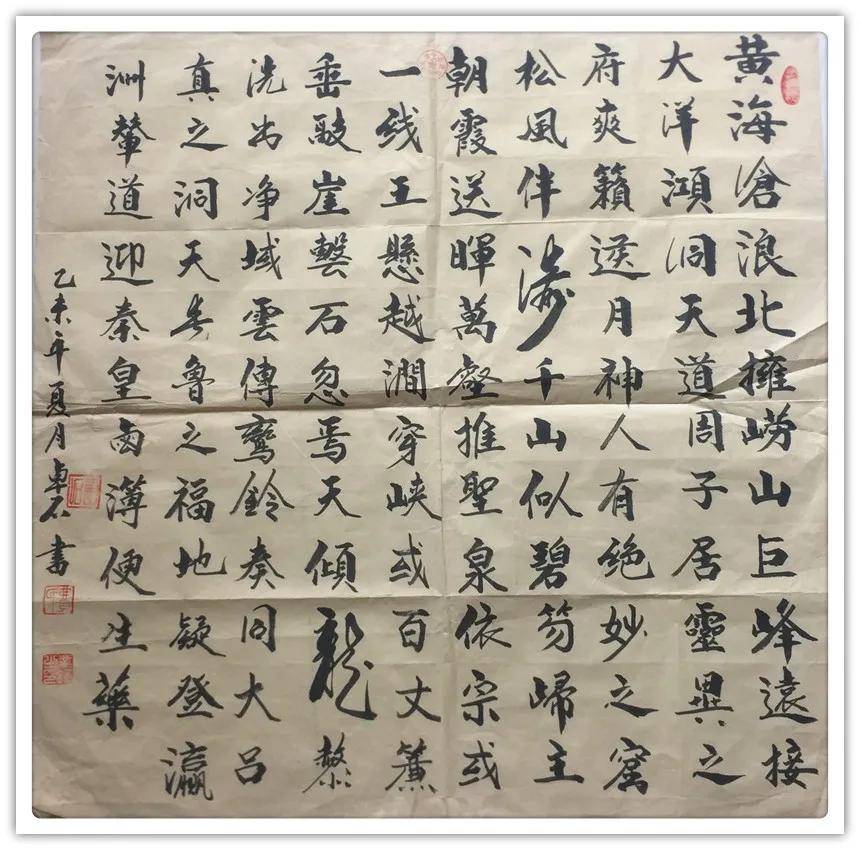 黄海滄浪北擁嶗山巨峰遠接
大洋澒洞天道周子居靈異之
府爽籟月神人有绝妙之窟
松風伴濤千山似碧笏歸主
朝霞送暉萬壑推聖泉依宗或
一线玉懸越澗穿峽或百丈簾
垂敲崖石忽焉天傾龍漦
洗出净域雲傳鸞鈴奏同大吕
真之洞天魯之福地疑登瀛
洲輦道迎秦皇鹵薄便生藥
乙未年夏月卓石書